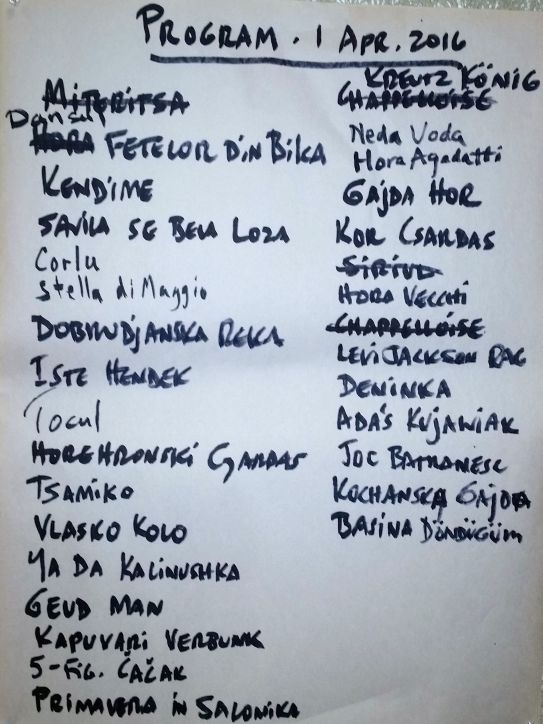 PROGRAM. 1 APR. 2016
MITERITSA
Dansul
HORA FETELOR DIN BIKA
KENDIME
SAVILA SE BELA LOZA
Corlu
Stella di Maggio
DOBRUDJANSKA REKA
ISTE HENDEK
Jocul
HOREHRONSKI CZARDAS
TSAMIKO
VLASKO KOLO
YA DA KALINUSHKA
GEUD MAN
KAPUVARI VERBUNK
5-FIG. ČAČAK
PRIMAVERA IN SALONIKA
KREUZ KÖNIG
CHAPPELLOISE
Neda Voda
Hora Agadatti
GAJDA HOR
KOR CSARDAS
SIRIUL
HORA VECCHI
CHAPPELLOISE
LEVI JACKSON RAG
DENINKA
ADA'S KUJAWIAK
JOC BATRANESC
KOCHANSKA GAJDA
BASINA DÖNDÜGÜM